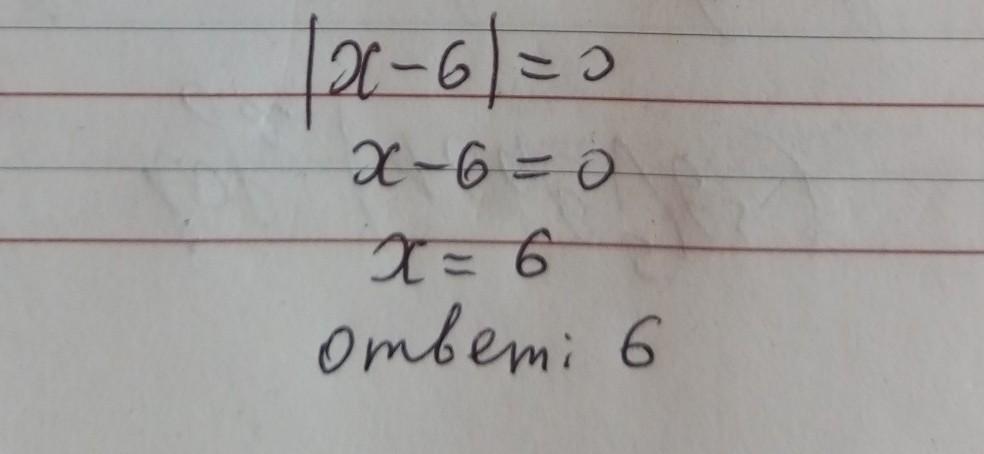 |x-6|=0
x-6=0
x=6
ответ: 6